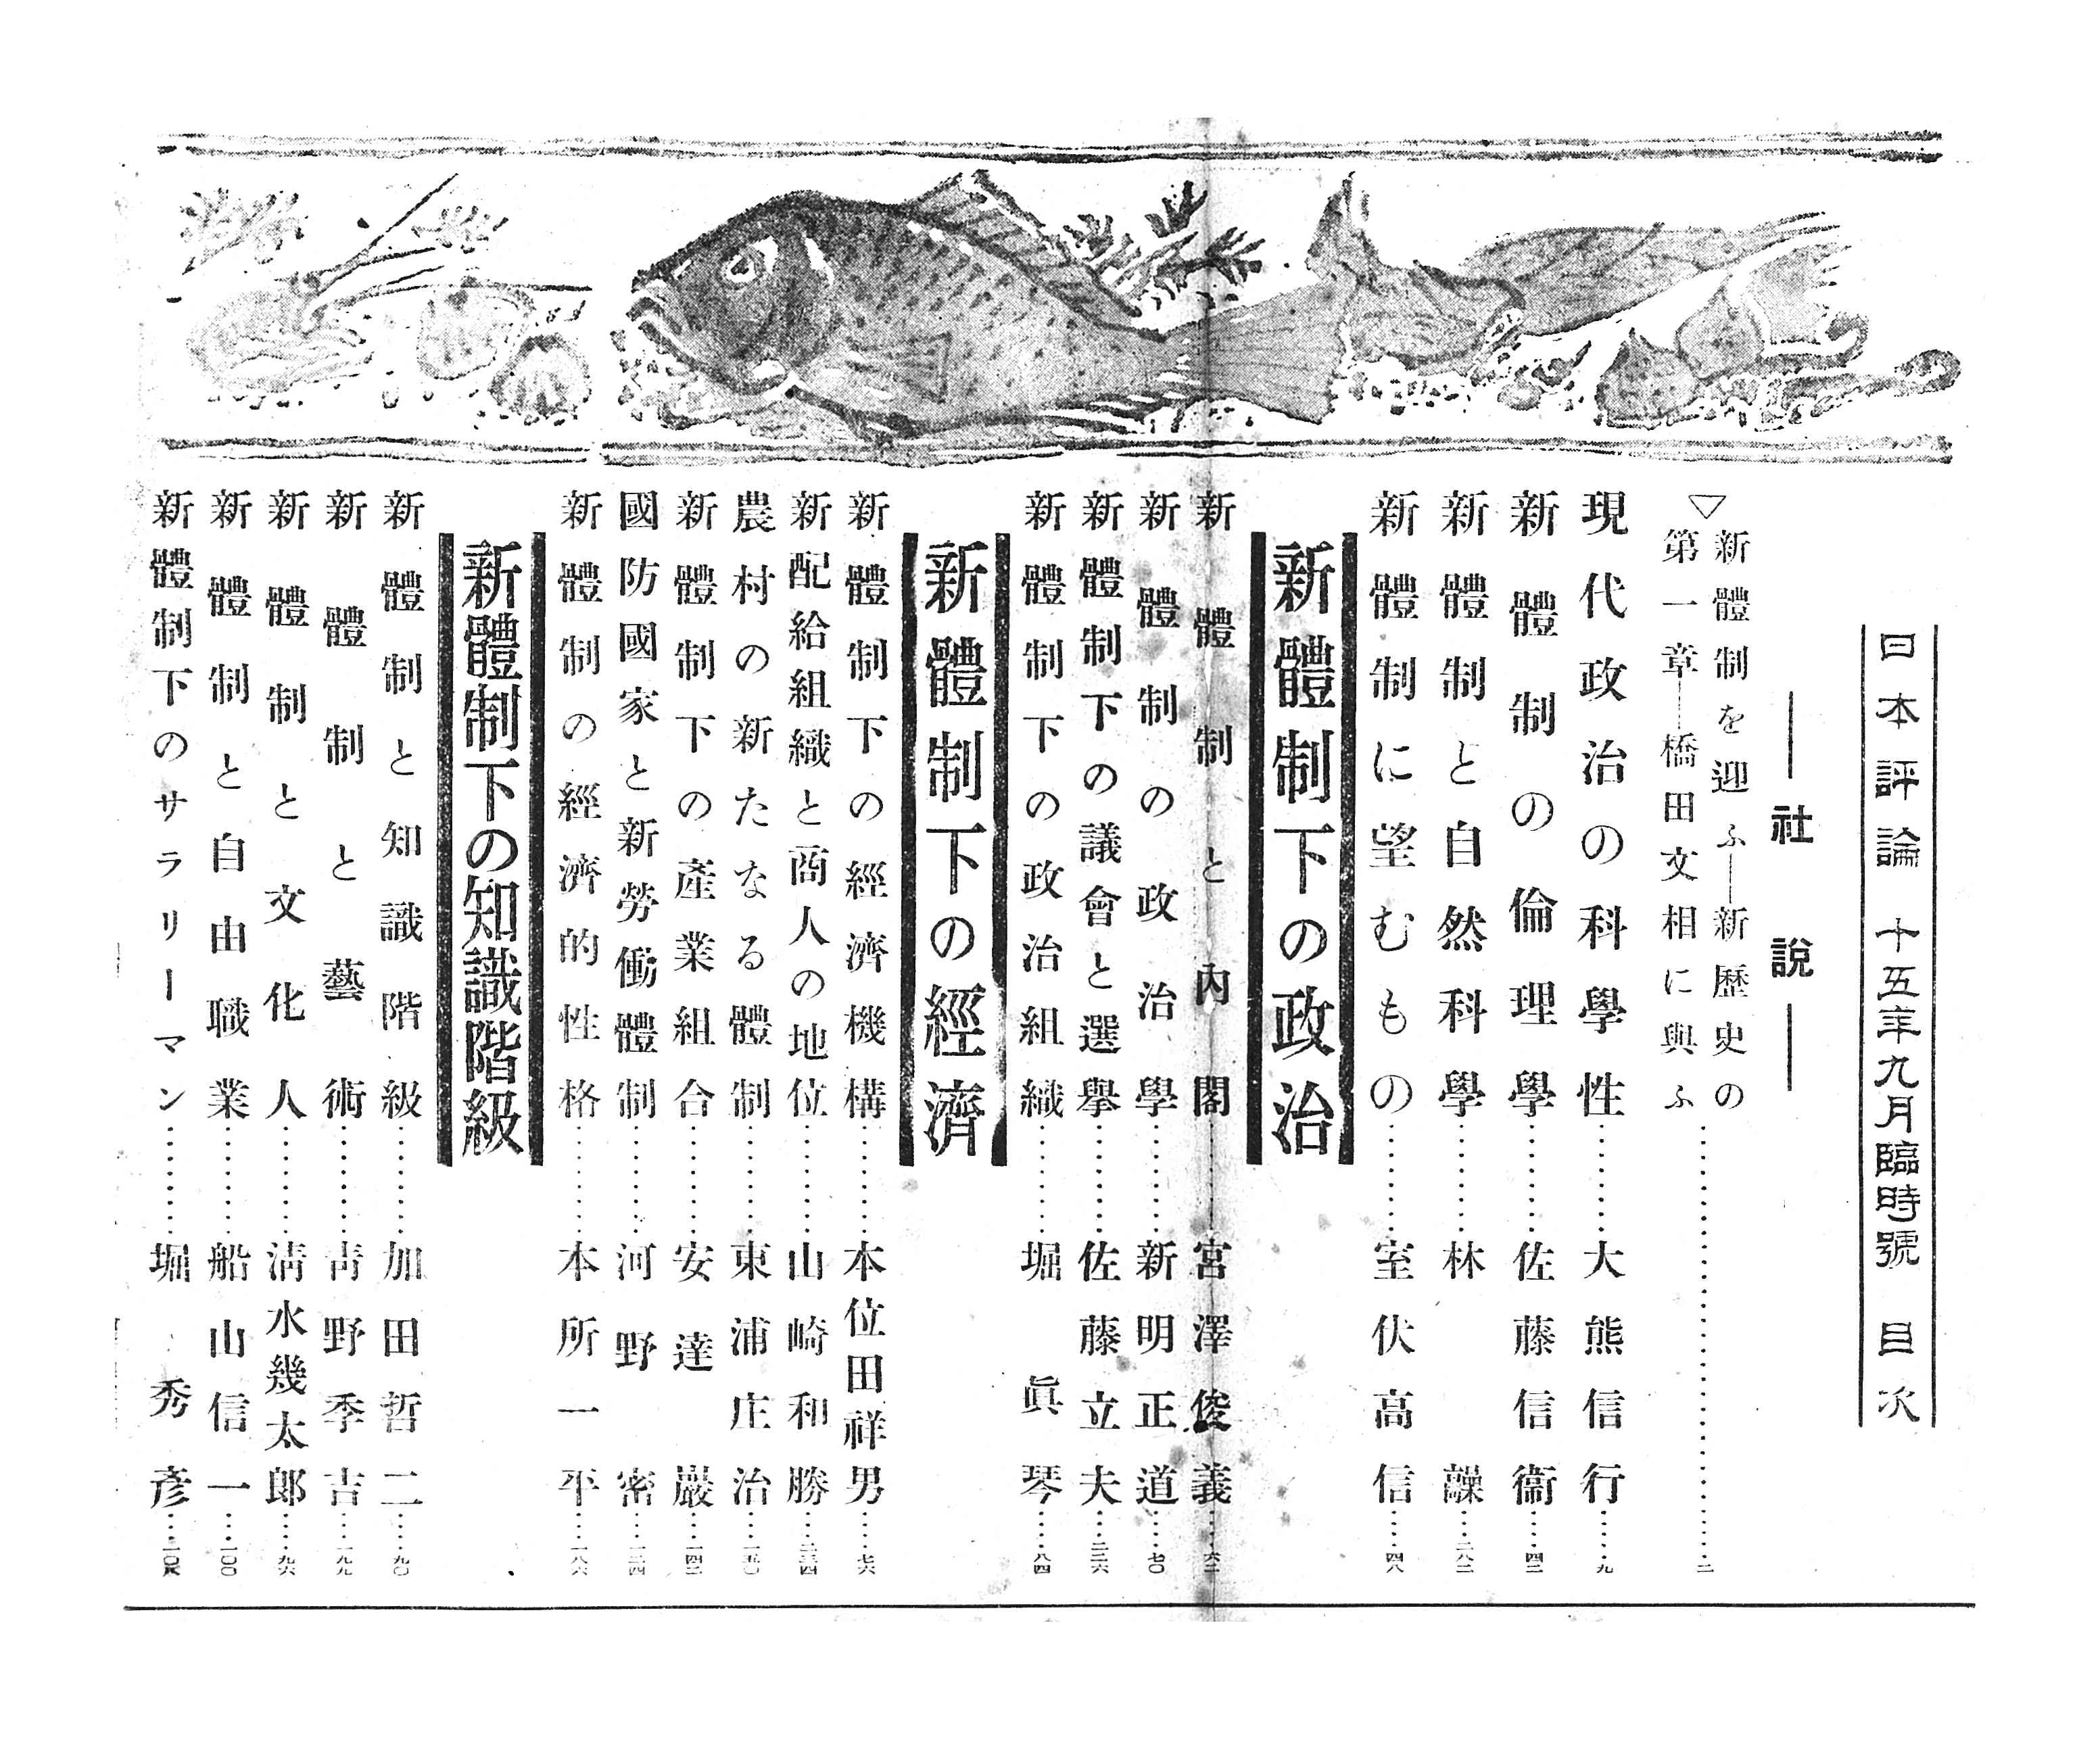 日本評論 十五年九月臨時號 目次
―社說―
▽新體制を迎ふ―新歷史の
第一章―橋田文相に與ふ……二
現代政治の科學性……大熊信行……九
新體制の倫理學……佐藤信衞……四二
新體制と自然科學……林 髞
新體制に望むもの……室伏高信……四八
新體制下の政治
新體制と內閣……宮澤俊義……六二
新體制の政治學……新明正道……七〇
新體制下の議會と選擧……佐藤立夫
新體制下の政治組織……堀眞琴……八四
新體制下の經濟
新體制下の經濟機構……本位田祥男……七六
新配給組織と商人の地位……山崎和勝
農村の新たなる體制……東浦庄治
新體制下の產業組合……安達巖
國防國家と新勞働體制……河野密
新體制の經濟的性格……本所一平……一八六
新體制下の知識階級
新體制と知識階級……加田哲二……九〇
新體制と藝術……靑野季吉……一九九
新體制と文化人……淸水幾太郎……九六
新體制と自由職業……船山信一……一〇〇
新體制下のサラリーマン……堀秀彥